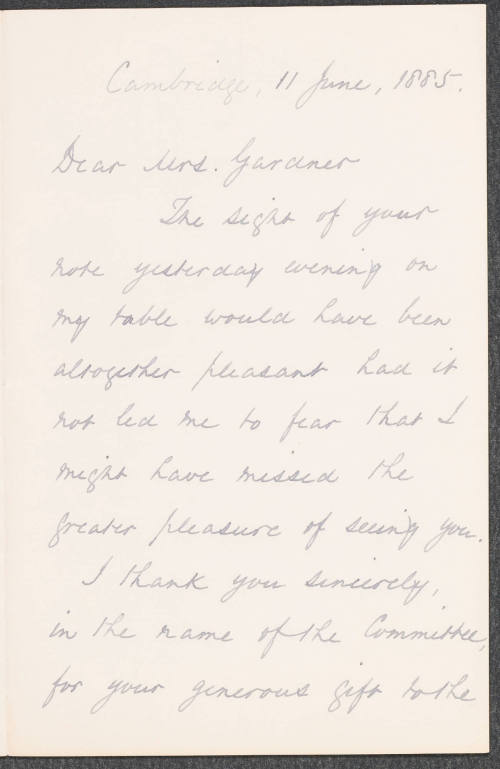 Cambridge, 11 June, 1885.
Dear Mrs. Gardner
The sight of your
note yesterday evening on
my table would have been
altogether pleasant had it
not led me to fear that I
might have missed the
greater pleasure of seeing you.
I thank you sincerely,
in the name of the Committee,
for your generous gift to the